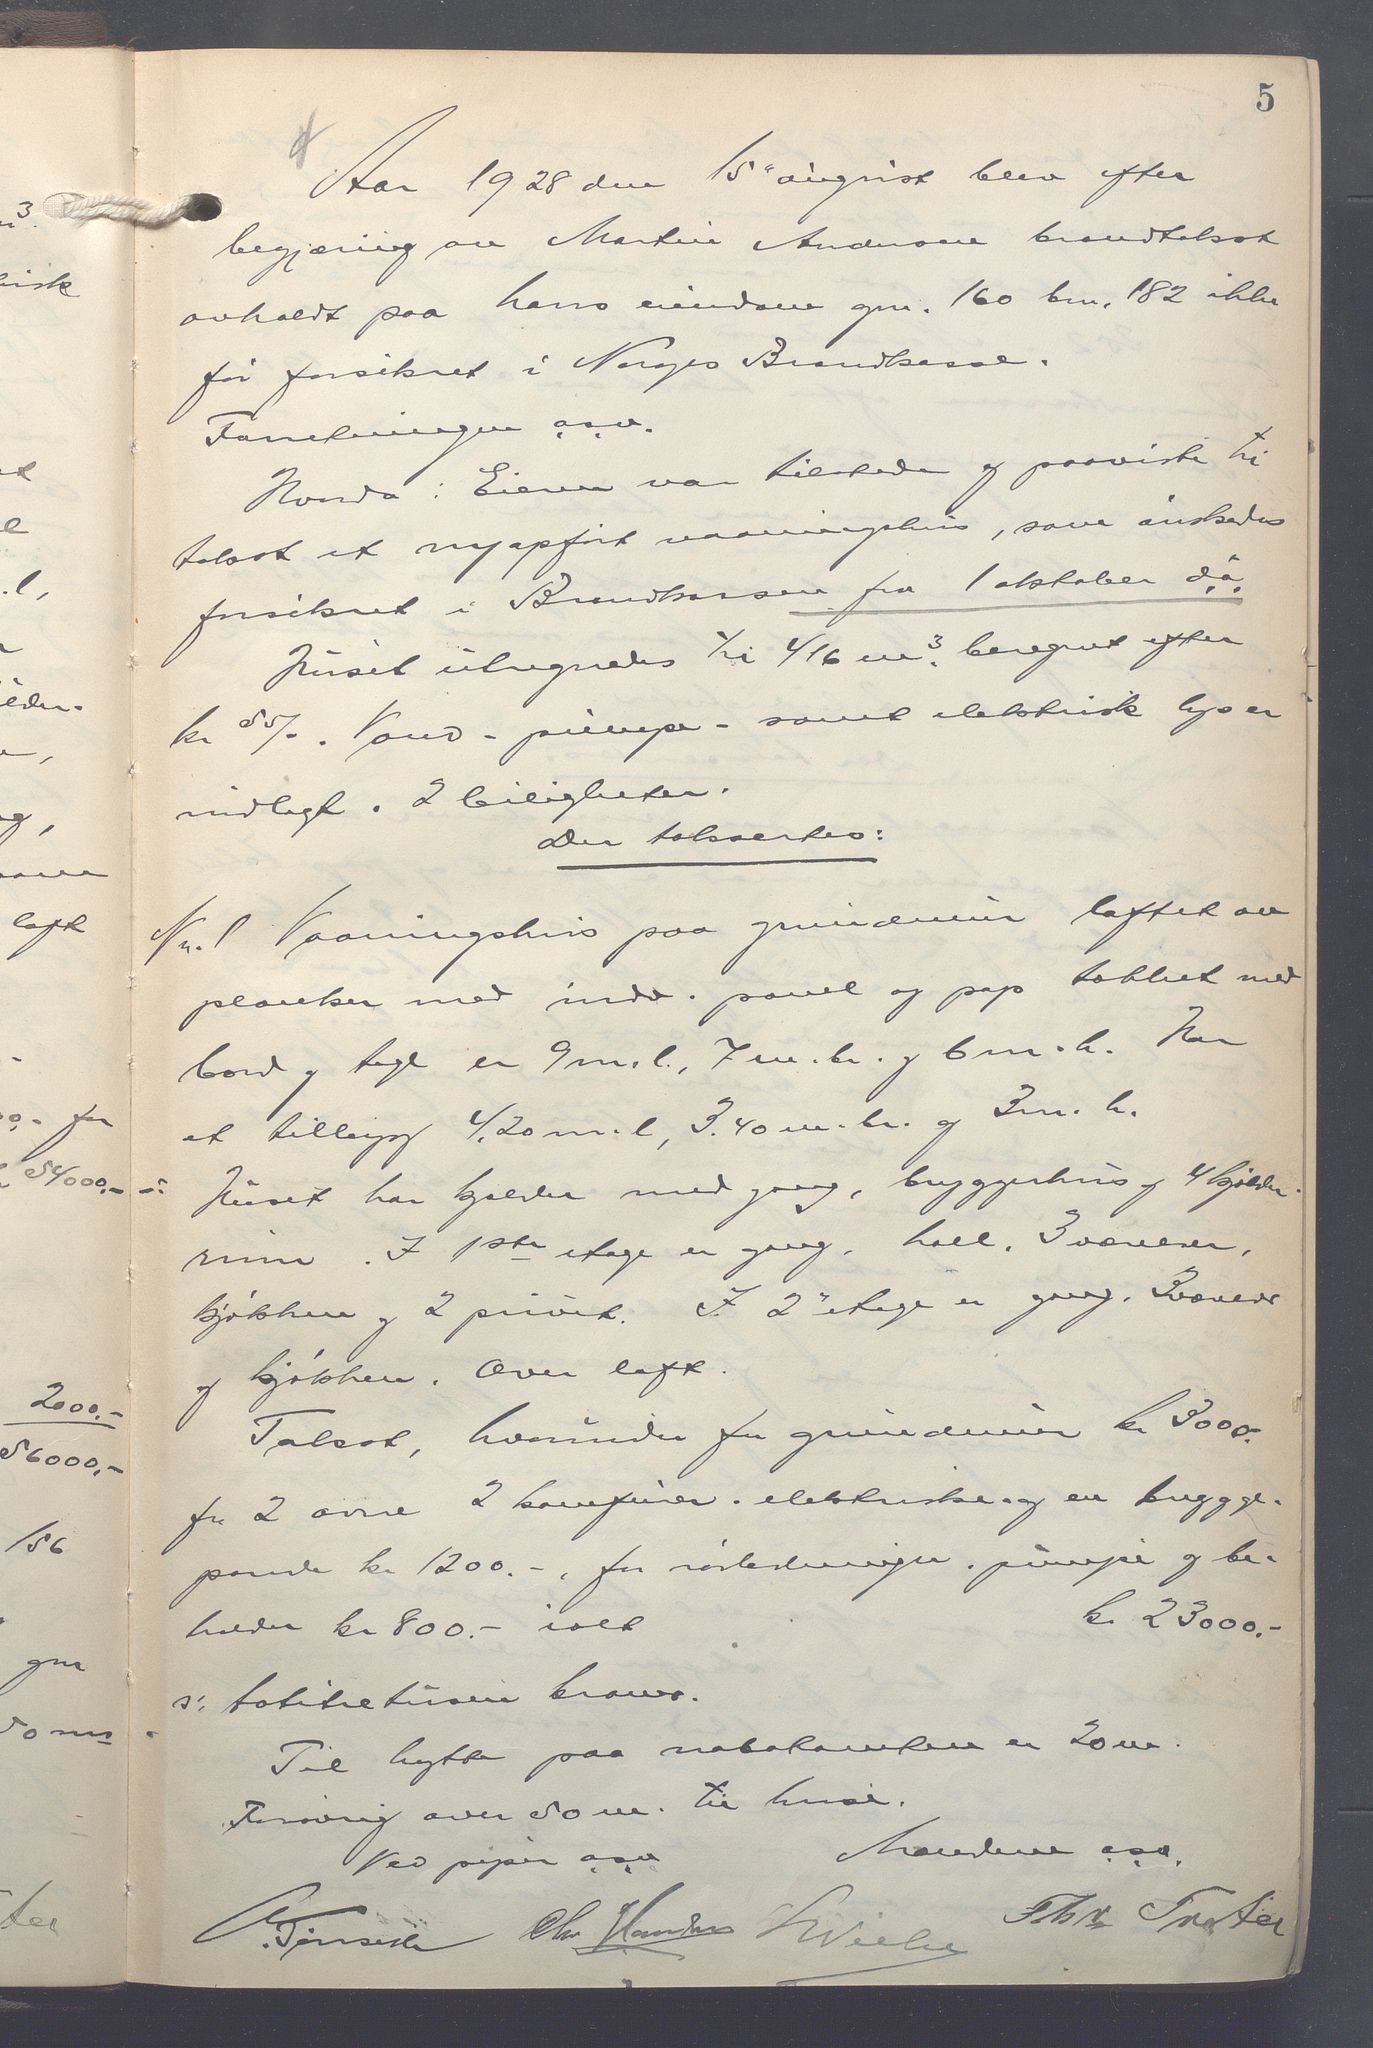 5
Aar 1928 den 15" august blev efter
begjæring av Martin Andersen brandtakst
avholdt paa hans eiendom gnr. 160 bnr. 182 ikke
før forsikret i Norges Brandkasse.
Forretningen o.s.v.
Hvorda: Eieren var tilstede og paaviste til
takst et nyopført vaaningshus, som ønskedes
forsikret i Brandkassen fra 1 oktober d.a.
Huset utregnedes til 416 m³. beregnet efter
kr 55/-. Vand - pumpe - samt elektrisk lys er
indlagt. 2 leiligheter.
Der taksertes:
Nr. 1 Vaaningshus paa grundmur laftet av
planker med indv. panel og pap tækket med
bord og tegl er 9 m. l., 7 m. br. og 6 m. h. Har
et tillegg 4,20 m. l, 3.40 m. br. og 3 m. h.
s: Huset har kjelder med gang, bryggerhus og 4 kjelder-
rum. I 1ste etage er gang, hall, 3 værelser,
kjøkken og 2 privet. I 2" etage er gang, 3 værelser
og kjøkken. Over loft.
Takst, hvorunder for grundmur kr 3000.-
for 2 ovne 2 komfurer - elektriske - og en brygge-
pande kr 1200.-, for rørledninger, pumpe og be-
holder kr 800.- ialt kr 23000.-
s: totiitretusen kroner.
Til hytte paa nabotomten er 20 m.
Forøvrig over 50 m. til huse.
Ved piper o.s.v. Mændene o.s.v.
Chr
m³.
loft
0,- for
54000,-
2000.-
56000,-
156
gnr
50 m